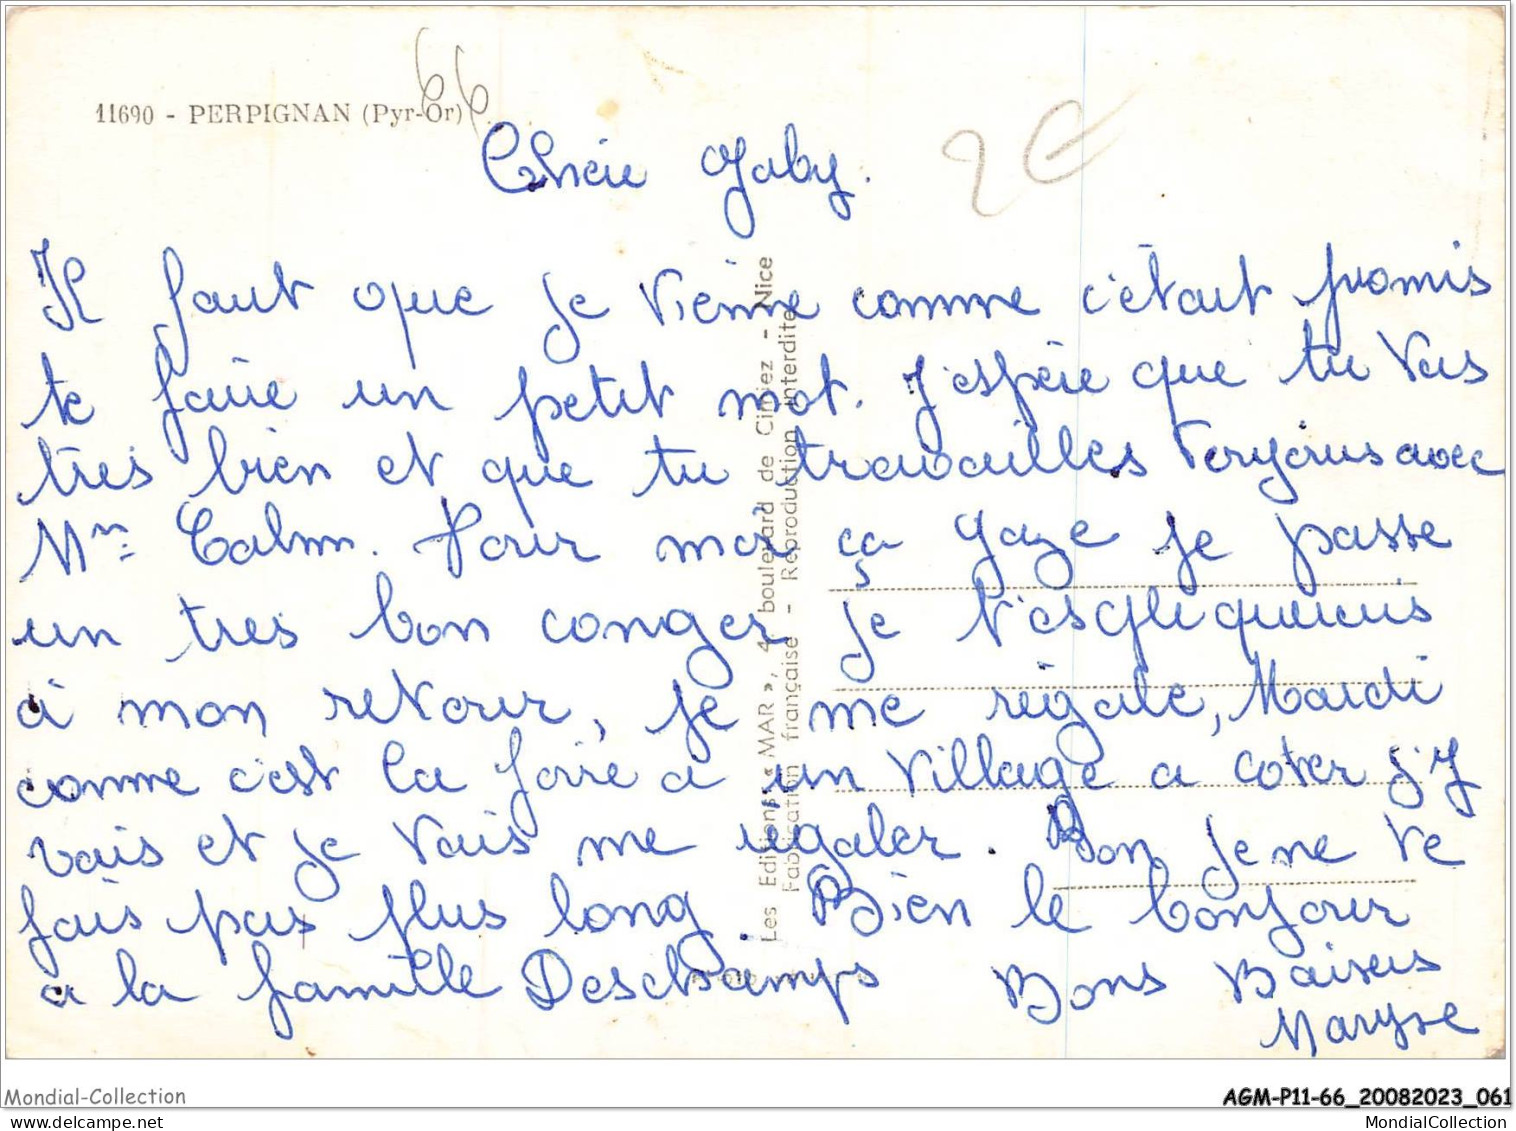 66
11690 - PERPIGNAN (Pyr-Or)
2€
Cheie Gaby.
Il faut que je vienne comme c'était promis
te faire un petit mot. J'espère que tu vas
très bien et que tu travailles toujours avec
Mme Calmn. Pour moi ça gaze je passe
un tres bon conger je t'esqliquerais
à mon retour, je me régale, Mardi
comme c'est la foire a un village a coter j'y
vais et je vais me régaler. Bon je ne te
fais pas plus long. Bien le bonjour
a la famille Deschamps Bons Baisers
Maryse
Les Editions « MAR », 4, boulevard de Cimiez - Nice
Fabrication française - Reproduction Interdite
Mondial-Collection
AGM-P11-66_20082023_061
mondial-collection.com
MondialCollection